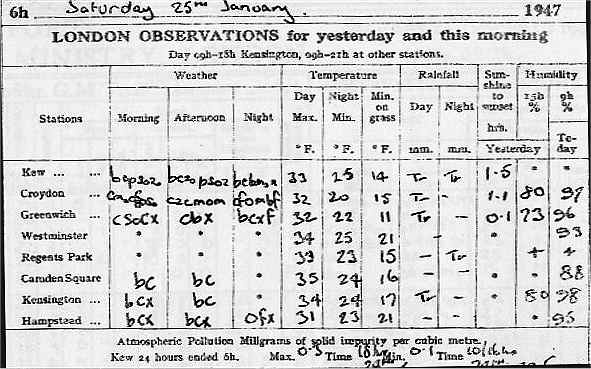 6h Saturday 25th January. 1947
LONDON OBSERVATIONS for yesterday and this morning
Day 09h-18h Kensington, 09h-21h at other stations.
Stations Weather Temperature Rainfall Sunshine to sunset Humidity
Morning Afternoon Night Day Max. Night Min. Min. on grass Day Night hrs. 15h % 9h %
° F. ° F. ° F. mm. mm. Yesterday To-day
Kew ... ... 33 25 14 Tr Tr 1.5 " "
Croydon ... 32 20 15 Tr - 1.1 80 97
Greenwich ... cbx bcxf 32 22 11 Tr - 0.1 73 96
Westminster " " " 34 25 21 " 93
Regents Park " " " 33 23 15 - Tr
Camden Square bc bc " 35 24 16 - - " 88
Kensington ... bcx bc " 34 24 17 Tr - " 80 98
Hampstead ... bcx bcx ofx 31 23 21 - - " 95
Atmospheric Pollution Millgrams of solid impurity per cubic metre.
Kew 24 hours ended 6h. Max. 0.3 Time 18h Min. 0.1 Time